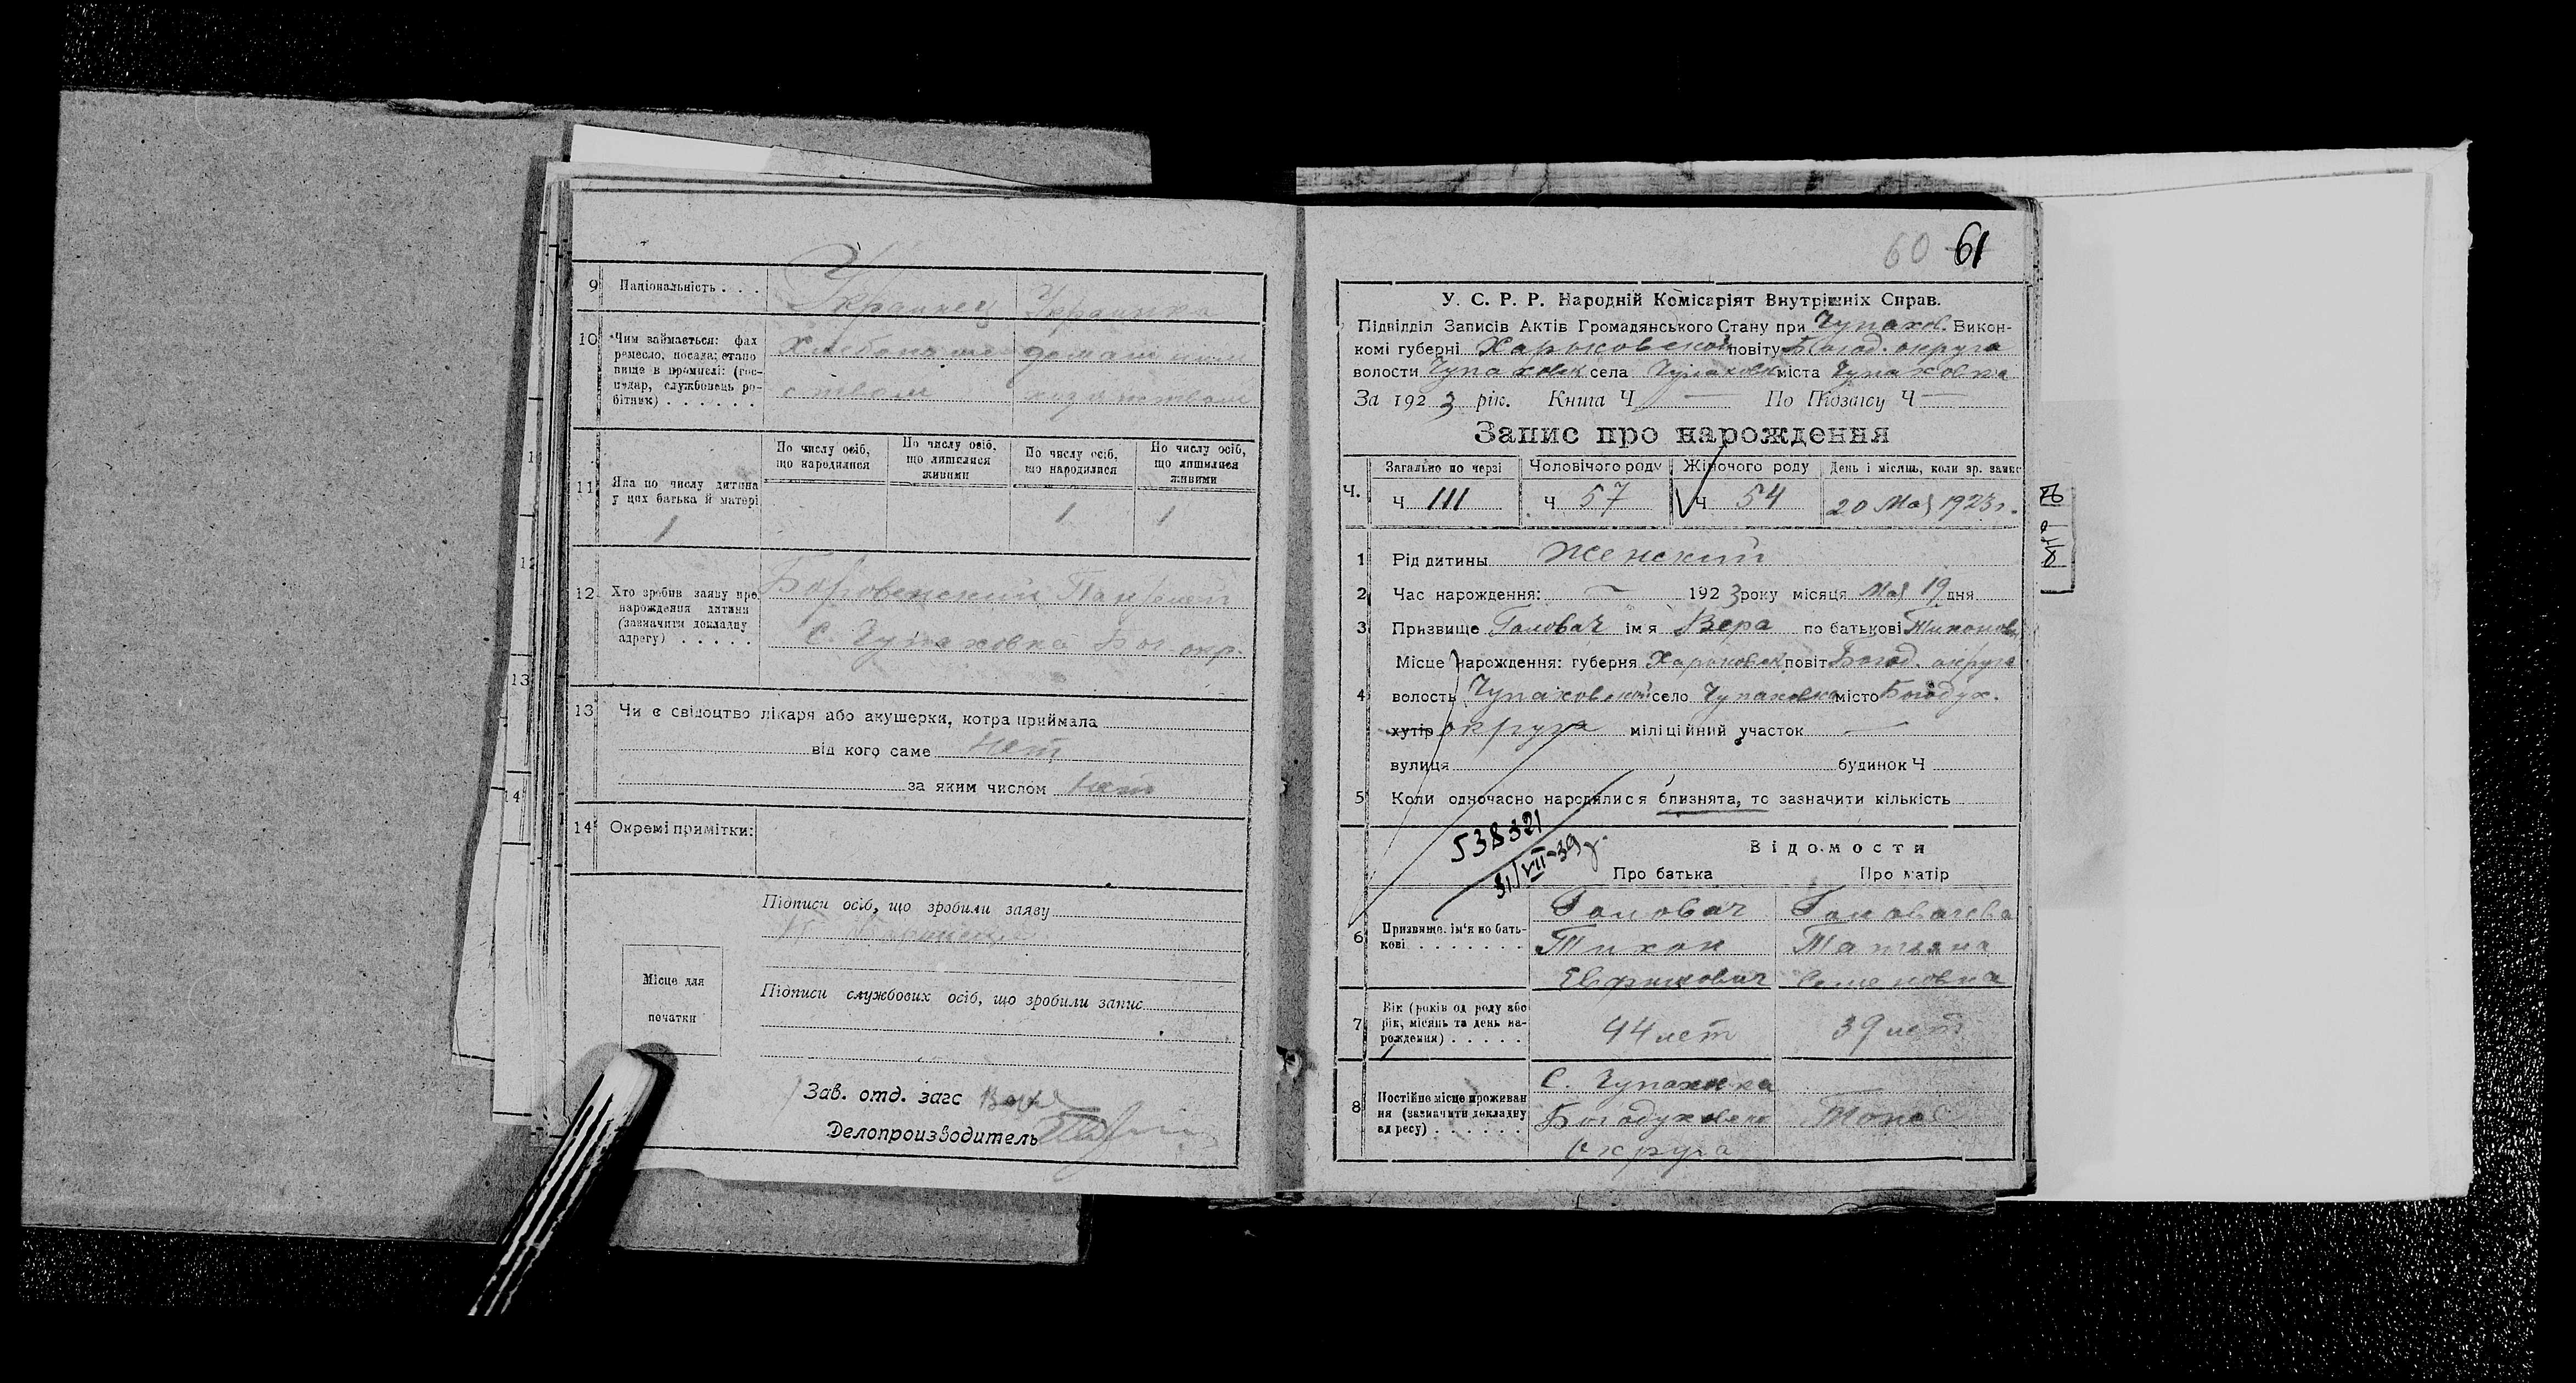 9 Національність . . . Украинец Украинка
10 Чим займається: фах
ремесло, посада; стано
вище в промислі: (гос-
подар, службовець ро-
бітник) . . . . . .
Хлебопаше домашним
ством хозяйством
11 Яка по числу дитина
у цих батька й матері
1
По числу осіб,
що народилися
По числу осіб,
що лишилися
живими
По числу осіб,
що народилися
1
По числу осіб,
що лишилися
живими
1
12 Хто зробив заяву про
нарождения дитини
(зазначити докладну
адресу) . . . . .
С. Чупаховка Бог. окр.
13 Чи є свідоцтво лікаря або акушерки, котра приймала
від кого саме нет
за яким числом нет
14 Окремі примітки:
Підписи осіб, що зробили заяву
Місце для
печатки
Підписи службових осіб, що зробили запис
Зав. отд. загс
Делопроизводитель
60 61
У. С. Р. Р. Народній Комісаріят Внутрішніх Справ.
Підвідділ Записів Актів Громадянського Стану при Чупахов. Викон-
комі губерні Харьковской повіту Богод. округа
волости Чупаховск села Чупаховк міста Чупаховка
За 1923 рік. Книга Ч — По Підзагсу Ч —
Запис про нарождення
Ч. Загально по черзі Чоловічого роду Жіночого роду День і місяць, коли зр. запис
Ч 111 Ч 57 Ч 54 20 Мая 1923 г.
1 Рід дитины Женский
2 Час нарождення: — 1923 року місяця Мая 19 дня
3 Призвище Головач ім'я Вера по батькові Тихонов
4 Місце нарождення: губерня Харьковск повіт Богод. округа
волость Чупаховской село Чупаховка місто Богодух.
хутір округа міліційний участок —
вулиця будинок Ч
5 Коли одночасно народилися близнята, то зазначити кількість
538321
31/VII-39 г.
Відомости
Про батька Про матір
6 Призвище, ім'я по бать-
кові . . . . . . .
Головач Головачева
Тихон Татьяна
Ефимович Семеновна
7 Вік (років од роду або
рік, місяць та день на-
рождения) . . . . .
44 лет 39 лет
8 Постійне місце проживан
ня (зазначити докладну
адресу) . . . . . .
С. Чупаховка —
Богодуховско
округа